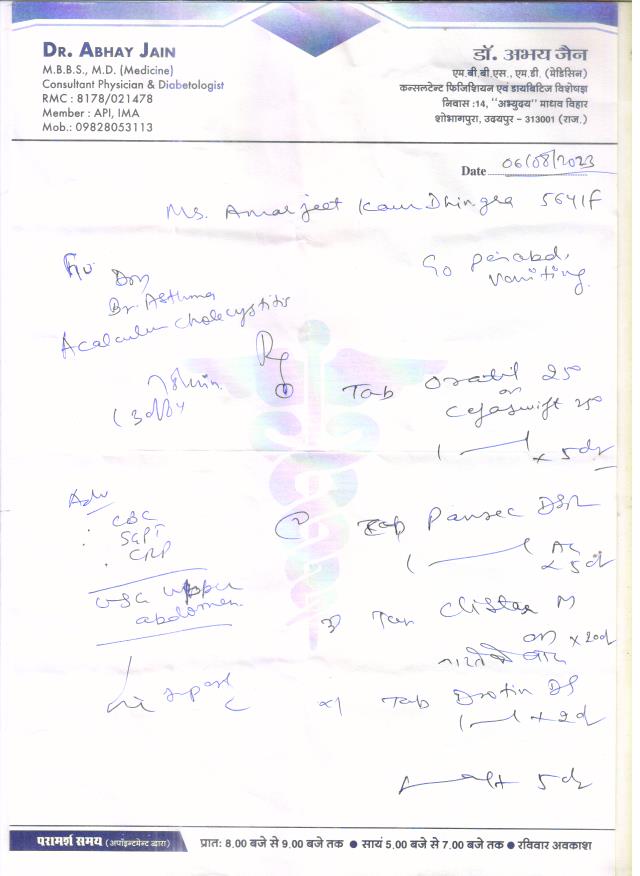 DR. ABHAY JAIN
M.B.B.S., M.D. (Medicine)
Consultant Physician & Diabetologist
RMC : 8178/021478
Member : API, IMA
Mob.: 09828053113
डॉ. अभय जैन
एम.बी.बी.एस., एम.डी. (मेडिसिन)
कन्सलटेन्ट फिजिशियन एवं डायबिटिज विशेषज्ञ
निवास :14, "अभ्युदय" माधव विहार
शोभागपुरा, उदयपुर - 313001 (राज.)
Date 06/08/2023
Ms. Amarjeet Kaur Dhingra 56Y/F
vomiting
Br. Asthma
Acalculus cholecystitis
Rx
① Tab Oratil 250
or
Cefaswift 250
x 5d
Adv
CBC
SGPT
CRP
USG upper
abdomen
② Tab Pansec DSR
AC
x 5d
3) Tab Clistar M
on x 20d
नाश्ते के बाद
4) Tab Drotin DS
x 2d
5d
परामर्श समय (अपॉइन्टमेन्ट द्वारा) प्रात: 8.00 बजे से 9.00 बजे तक ● सायं 5.00 बजे से 7.00 बजे तक ● रविवार अवकाश